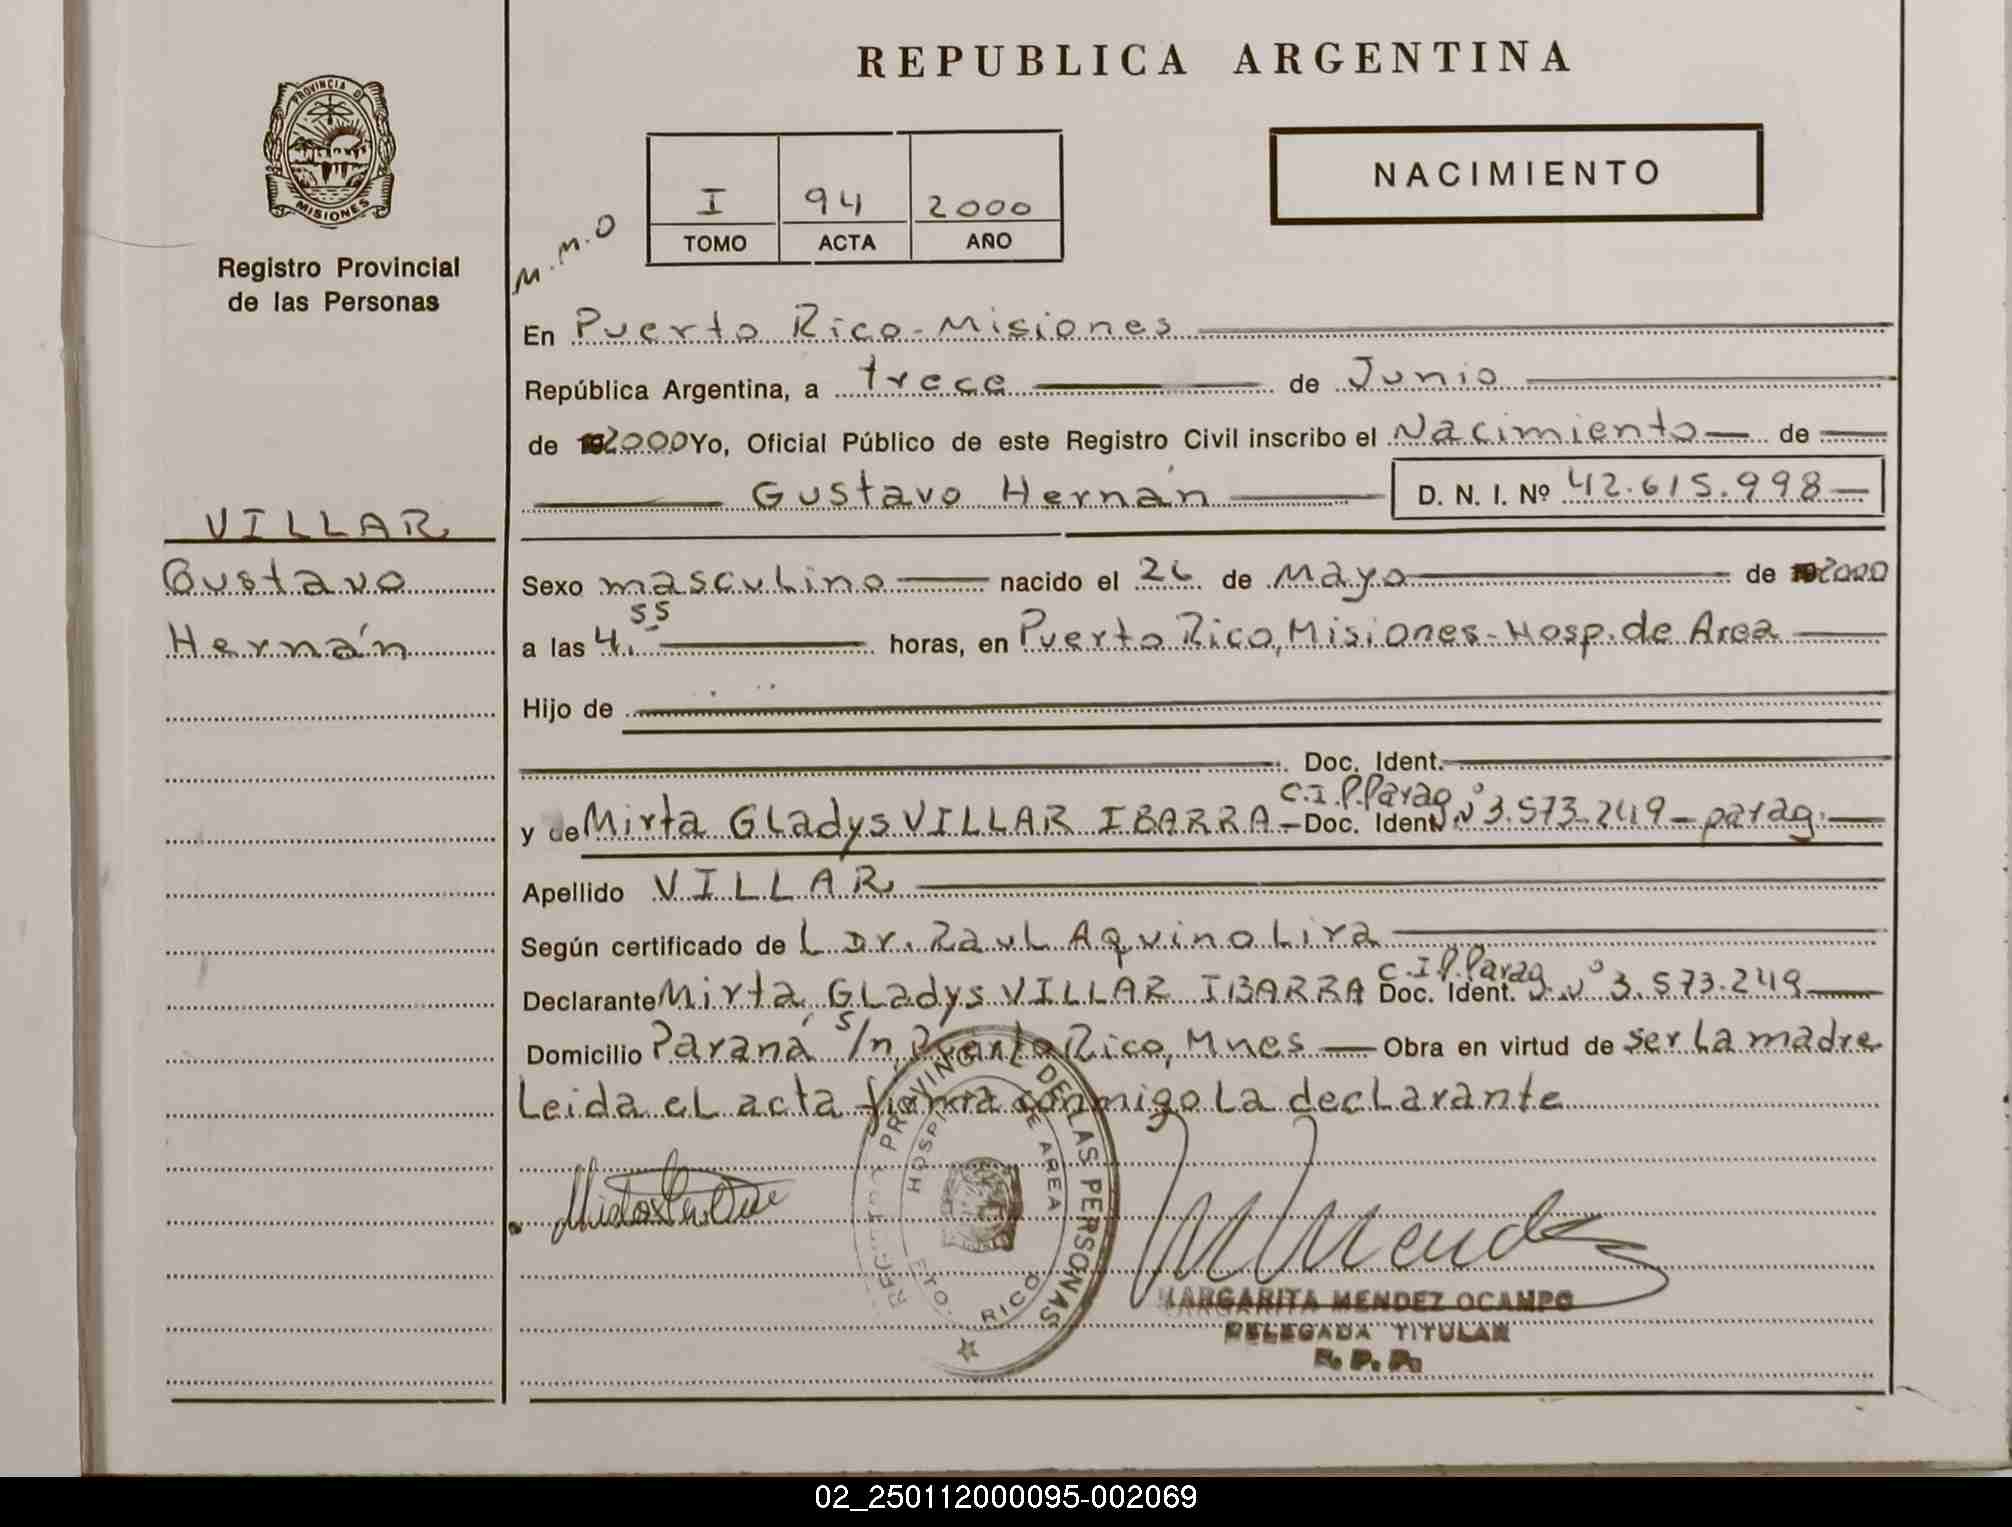 REPUBLICA ARGENTINA
PROVINCIA DE
MISIONES
Registro Provincial
de las Personas
NACIMIENTO
I 94 2000
TOMO ACTA AÑO
M.M.O
En Puerto Rico-Misiones
República Argentina, a trece de Junio
de 192000 Yo, Oficial Público de este Registro Civil inscribo el Nacimiento de
Gustavo Hernán D. N. I. Nº 42.615.998
VILLAR
Gustavo
Hernán
Sexo masculino nacido el 26 de Mayo de 192000
a las 4.55 horas, en Puerto Rico, Misiones-Hosp. de Area
Hijo de
Doc. Ident.
y de Mirta Gladys VILLAR IBARRA - Doc. Ident. C.I.P.Parag Nº 3.573.249 - parag.
Apellido VILLAR
Según certificado de L Dr. Raul Aquino Lira
Declarante Mirta Gladys VILLAR IBARRA Doc. Ident. C.I.P.Parag. Nº 3.573.249
Domicilio Paraná s/n, Puerto Rico, Mnes Obra en virtud de ser La madre
Leida el acta firma conmigo La declarante
REGISTRO PROVINCIAL DE LAS PERSONAS
HOSPITAL DE AREA
PTO. RICO
M Mendez
MARGARITA MENDEZ OCAMPO
DELEGADA TITULAR
R. P. P.
02_250112000095-002069